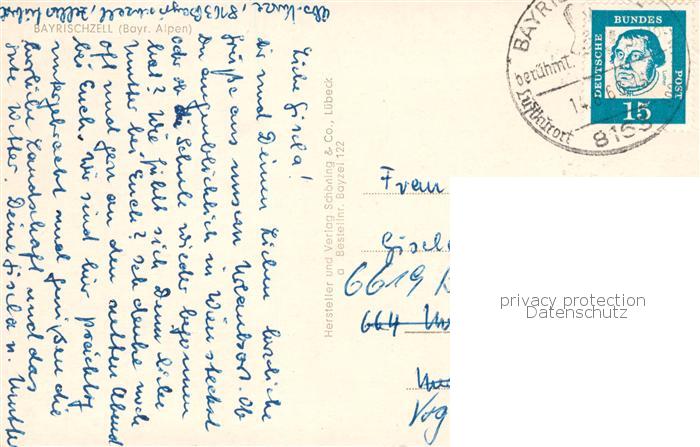 Abs. Kunze, 8163 Bayrischzell,
BAYRISCHZELL (Bayr. Alpen)
Liebe Gisela!
Dir und Deinen Lieben herzliche
Grüße aus unserm Urlaubsort. Ob
Du augenblicklich in Wien steckst
oder ob die Schule wieder begonnen
hat? Wie fühlt sich Deine liebe
Mutter bei Euch? Ich denke noch
oft und gern an den netten Abend
bei Euch. Wir sind hier prächtig
untergebracht und genießen die
herrliche Landschaft und das
gute Wetter. Deine Gisela u. Mutter
Hersteller und Verlag Schöning & Co., Lübeck
a Bestellnr. Bayzel 122
BAYRIS
berühmt
14. 6
Luftkurort
8163
DEUTSCHE BUNDES POST
15
Frau
Gisel
6619
664
Vog
privacy protection
Datenschutz